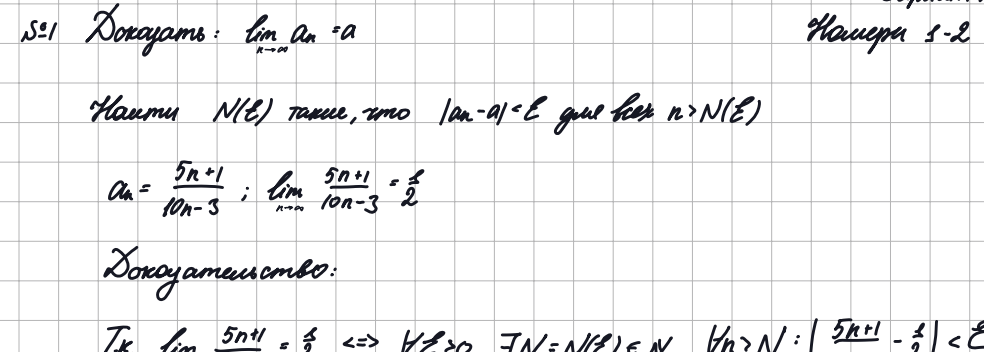 №1 Доказать: lim aₙ = a
n→∞
Номера 1-2
Найти N(ε) такие, что |aₙ-a|<ε для всех n>N(ε)
aₙ = (5n+1)/(10n-3) ; lim (5n+1)/(10n-3) = 1/2
n→∞
Доказательство:
Т.к lim 5n+1 = 1/2 <=> ∀ε>0 ∃N=N(ε)∈N ∀n>N : | 5n+1 - 1/2 | < ε